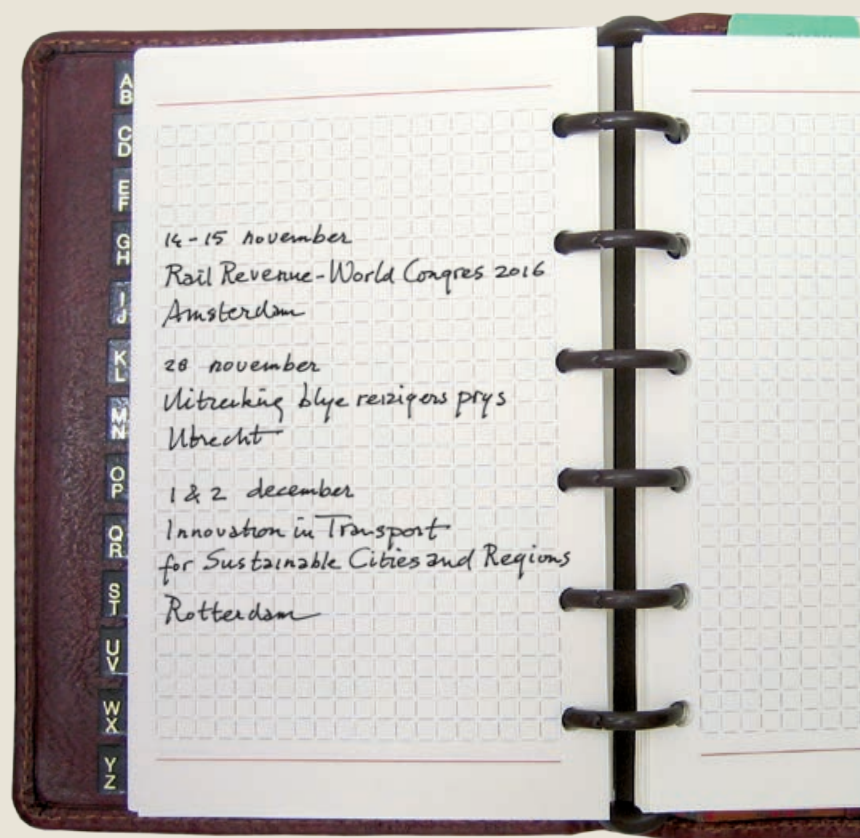 A
B
C
D
E
F
G
H
I
J
K
L
M
N
O
P
Q
R
S
T
U
V
W
X
Y
Z
14-15 november
Rail Revenue-World Congres 2016
Amsterdam
28 november
Uitreiking blije reizigers prijs
Utrecht
1 & 2 december
Innovation in Transport
for Sustainable Cities and Regions
Rotterdam